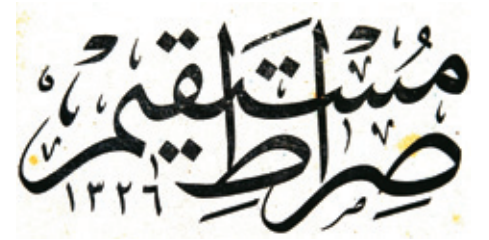 صِرَاطِ مُسْتَقِيم
١٣٢٦